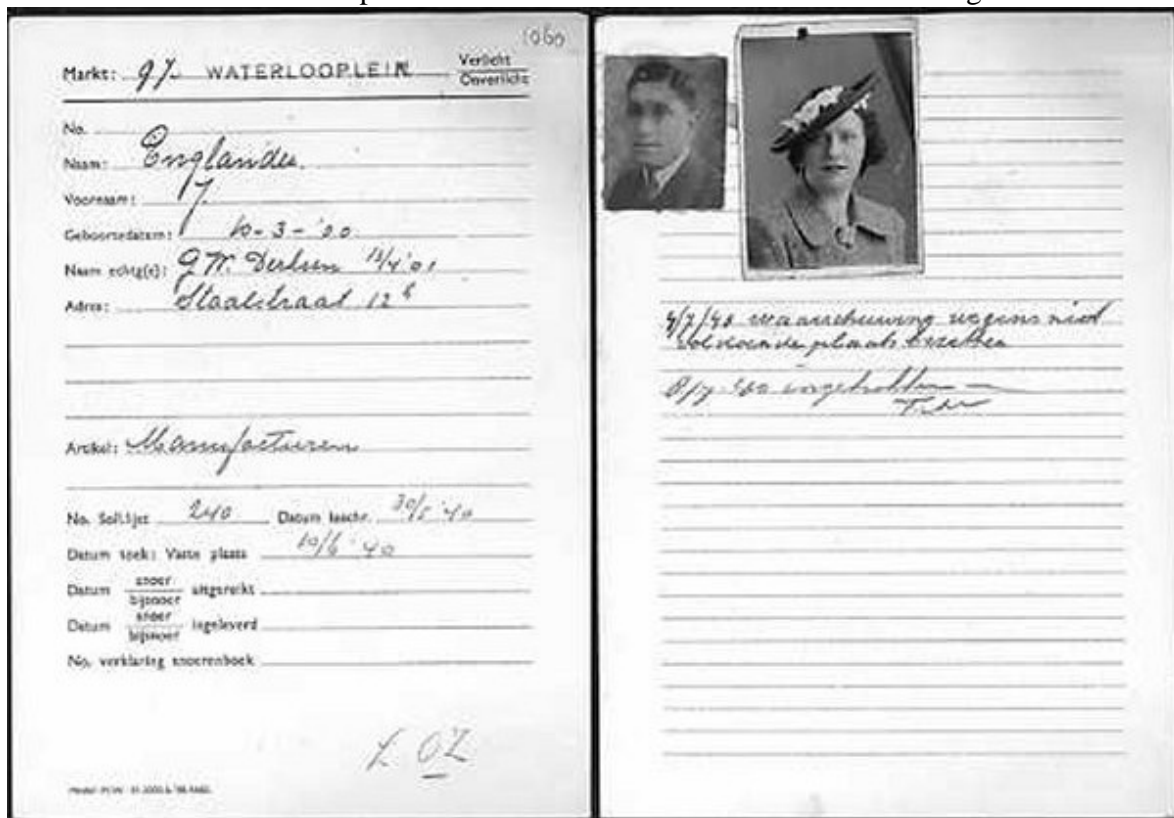 1060
Markt: 97. WATERLOOPLEIN Verlicht
Onverlicht
No.
Naam: Englander
Voornaam: J.
Geboortedatum: 10-3-'00
Naam echtg(e): G.W. 13/4'01
Adres: Staalstraat 12
Artikel: Manufacturen
No. Soll.lijst 240 Datum inschr. 30/5 '40
Datum toek: Vaste plaats 10/6 '40
Datum snoer
bijsnoer uitgereikt
Datum snoer
bijsnoer ingeleverd
No. verklaring snoerenboek
L OZ
4/7/40 waarschuwing wegens niet
voldoende plaats bezetten
8/7-40 ingetrokken